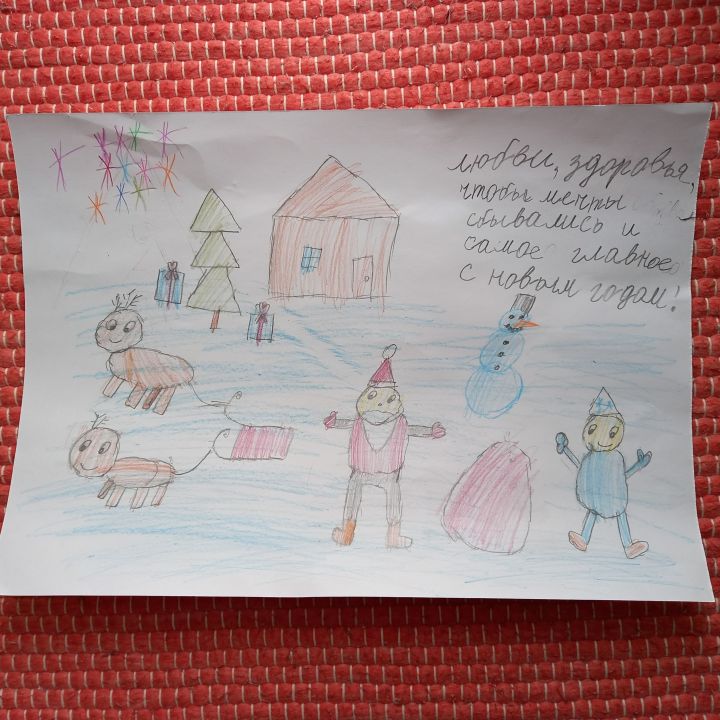 любви, здоровья,
чтобы мечты
сбывались и
самое главное
с новым годом!